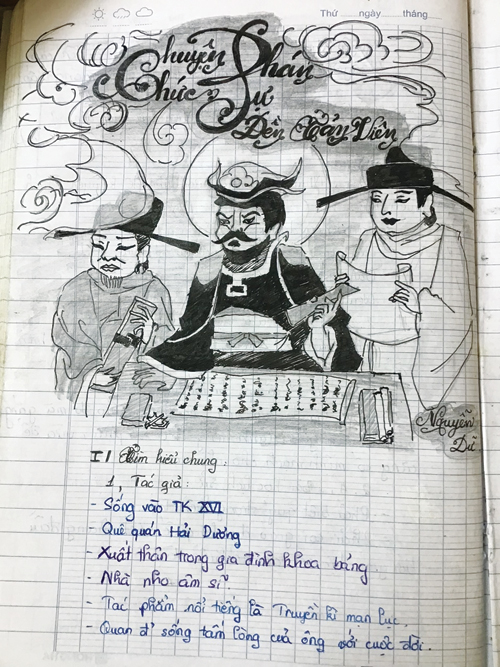 Thứ ngày tháng
Chuyện
Chức Phán
Sự
Đền Tản Viên
Nguyễn
Dữ
I/ Tìm hiểu chung:
1, Tác giả:
- Sống vào TK XVI
- Quê quán Hải Dương
- Xuất thân trong gia đình khoa bảng.
- Nhà nho ẩn sĩ
- Tác phẩm nổi tiếng là Truyền kì mạn lục.
- Quan đ sống tấm lòng của ông với cuộc đời.